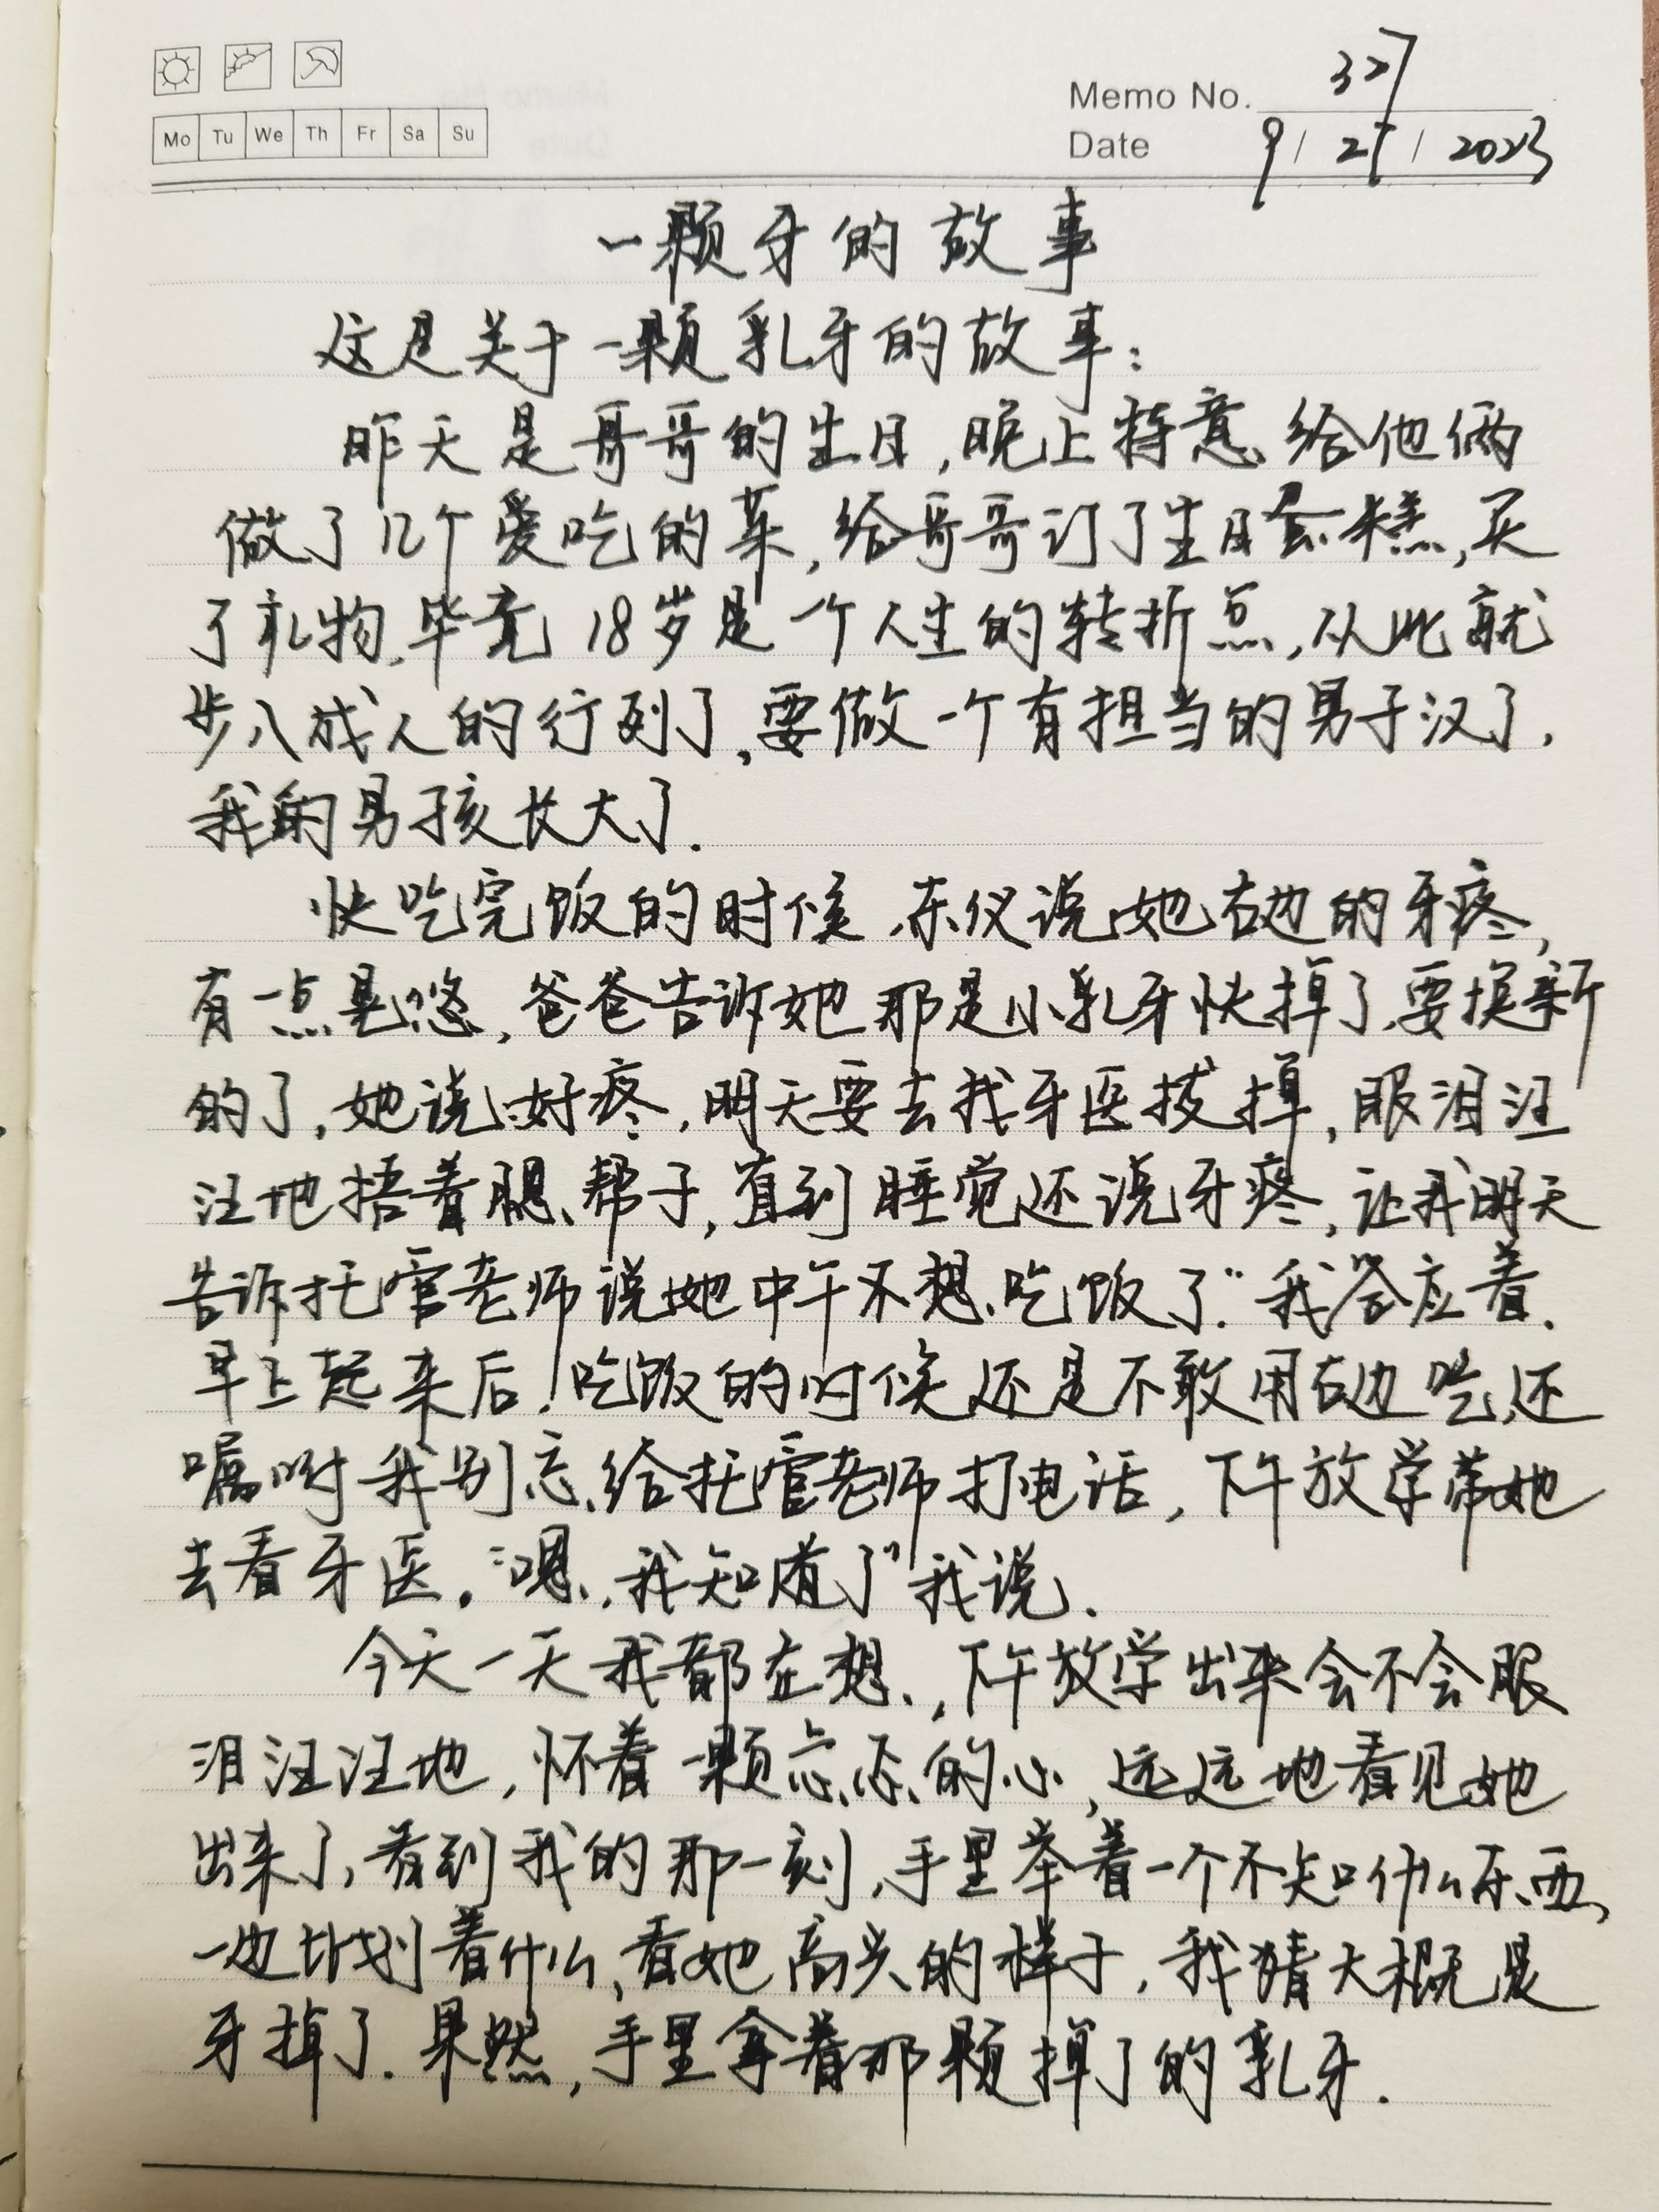 Memo No. 327
Mo Tu We Th Fr Sa Su
Date 9 / 25 / 2023
一颗牙的故事
这是关于一颗乳牙的故事：
昨天是哥哥的生日，晚上特意给他俩
做了几个爱吃的菜，给哥哥订了生日蛋糕，买
了礼物，毕竟18岁是一个人生的转折点，从此就
步入成人的行列了，要做一个有担当的男子汉了，
我的男孩长大了.
快吃完饭的时候，东仪说她右边的牙疼，
有一点晃悠，爸爸告诉她那是小乳牙快掉了，要换新
的了，她说好疼，明天要去找牙医拔掉，眼泪汪
汪地捂着腮帮子，直到睡觉还说牙疼，让我明天
告诉托管老师说她中午不想吃饭了.“我答应着.
早上起来后，吃饭的时候还是不敢用右边吃，还
嘱咐我别忘给托管老师打电话，下午放学带她
去看牙医。“嗯，我知道了”我说.
今天一天我都在想，下午放学出来会不会眼
泪汪汪地，怀着一颗忐忑的心，远远地看见她
出来了，看到我的那一刻，手里举着一个不知什么东西，
一边计划着什么，看她高兴的样子，我猜大概是
牙掉了.果然，手里拿着那颗掉了的乳牙.